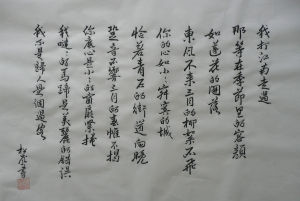 我打江南走過
那等在季節里的容顏
如蓮花的開落
東風不來三月的柳絮不飛
你的心如小々寂寞的城
恰若青石的街道向晚
跫音不響三月的春帷不揭
你底心是小々的窗扉緊掩
我噠々的馬蹄是美麗的錯誤
我不是歸人是個過客